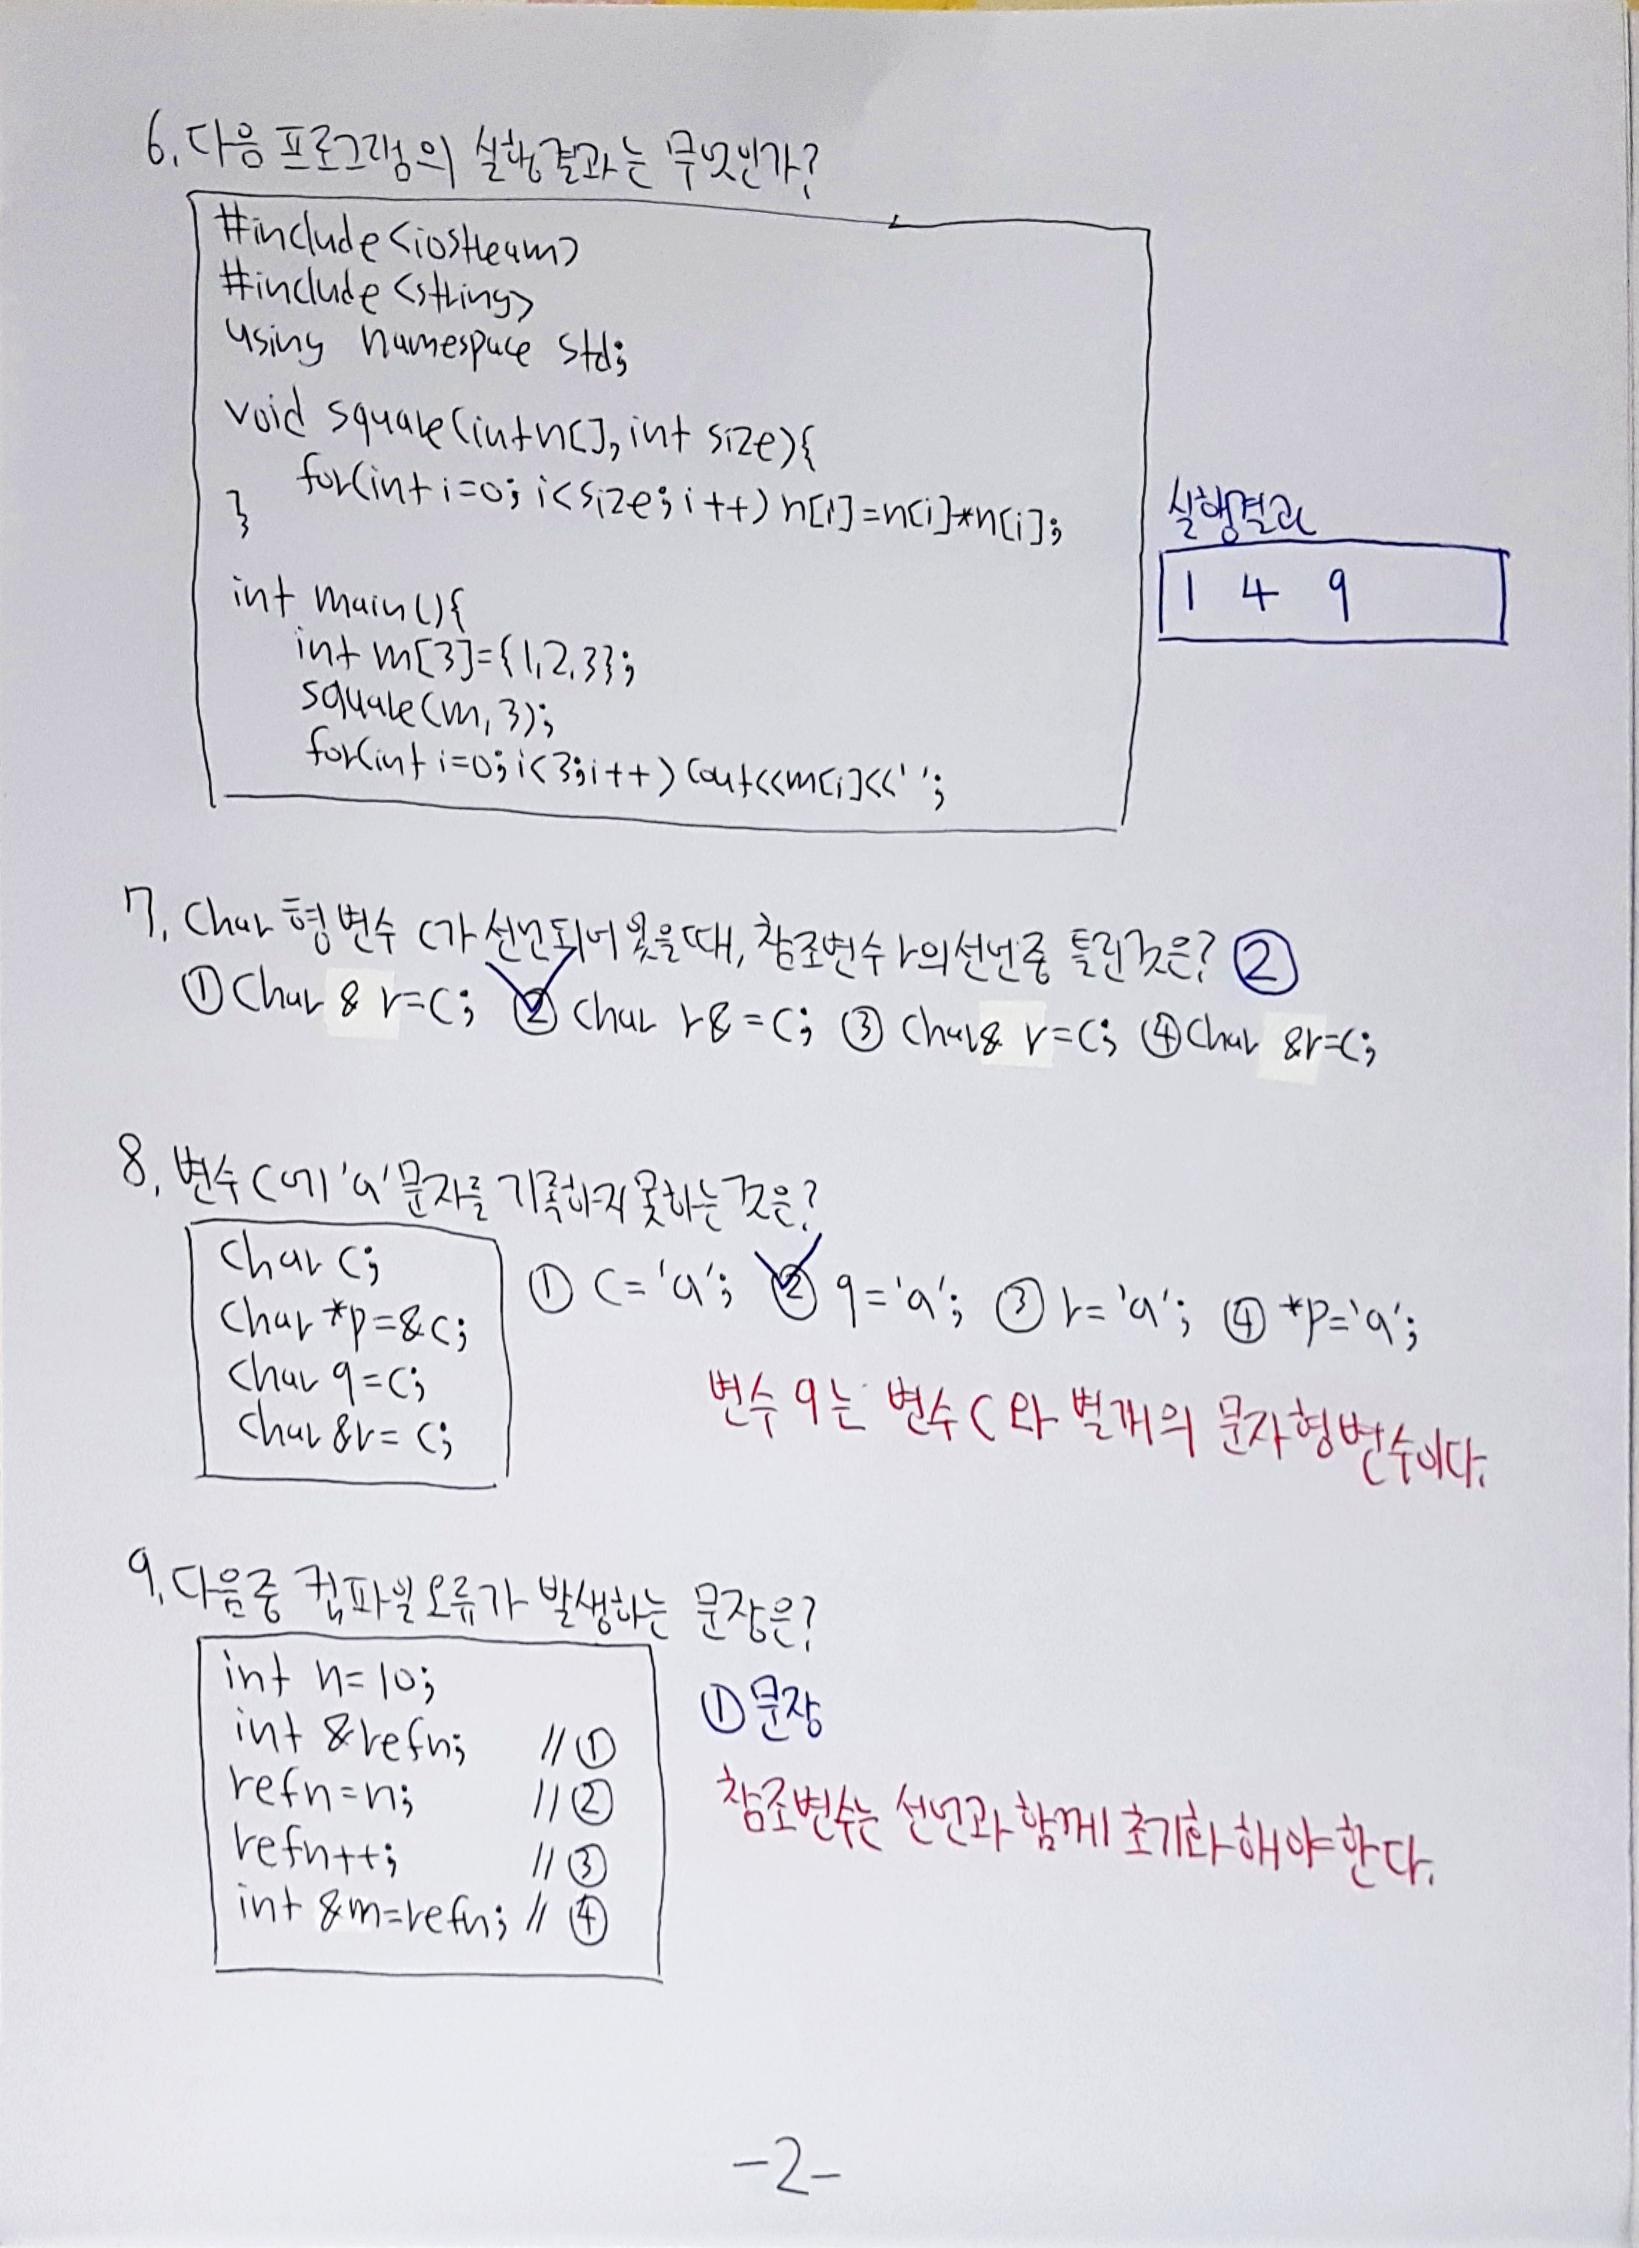 6. 다음 프로그램의 실행결과는 무엇인가?
#include<iostream>
#include<string>
using namespace std;
void square(int n[], int size){
for(int i=0; i<size; i++) n[i]=n[i]*n[i];
}
실행결과
1 4 9
int main(){
int m[3]={1,2,3};
square(m, 3);
for(int i=0; i<3; i++) cout<<m[i]<<' ';
7. char형 변수 c가 선언되어 있을 때, 참조변수 r의 선언 중 틀린 것은? ②
① char & r=c; ② char r& =c; ③ char& r=c; ④ char &r=c;
8. 변수 c에 'a' 문자를 기록하지 못하는 것은?
char c;
char *p=&c;
char q=c;
char &r= c;
① c= 'a'; ② q='a'; ③ r= 'a'; ④ *p='a';
변수 q는 변수 c와 별개의 문자형 변수이다.
9. 다음중 컴파일 오류가 발생하는 문장은?
int n=10;
int &refn; // ①
refn=n; // ②
refn++; // ③
int &m=refn; // ④
① 문장
참조변수는 선언과 함께 초기화 해야 한다.
-2-